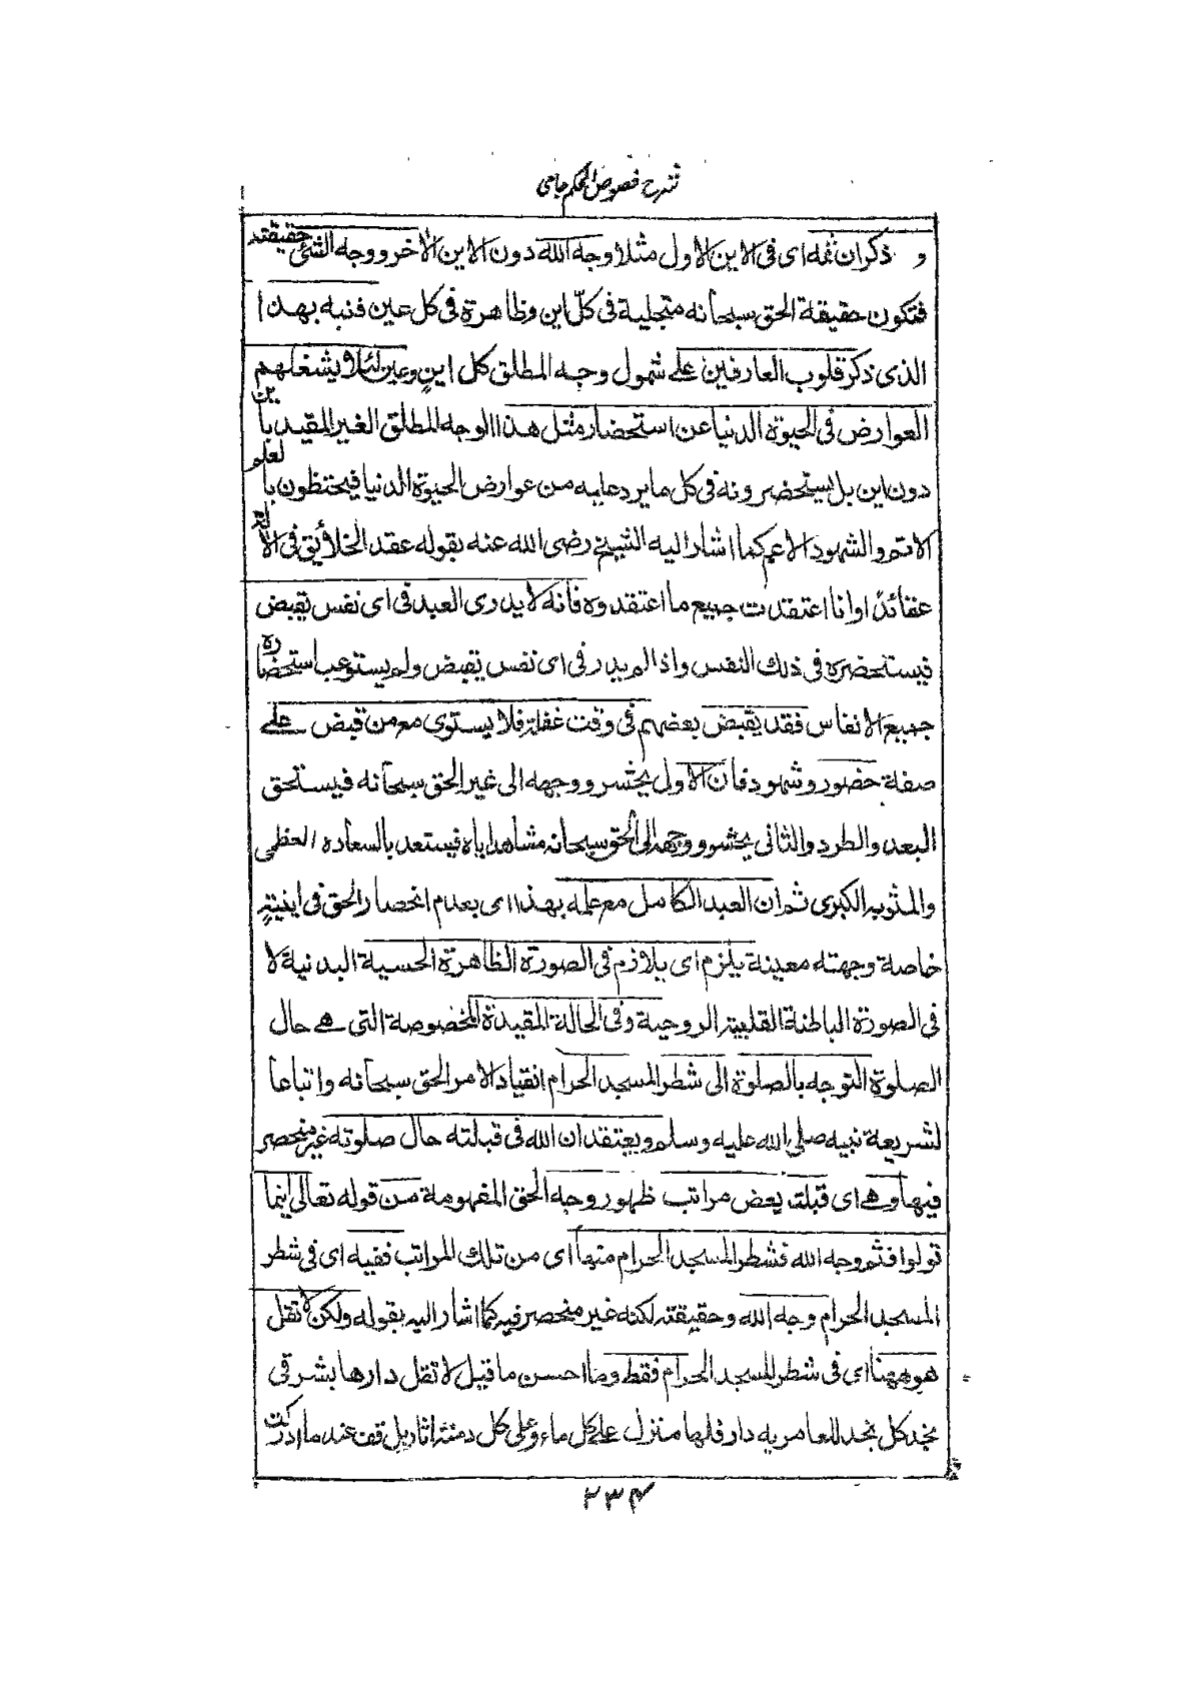 شرح فصوص الحكم جامی
و ذكر ان ثمه ای فی الاین الاول مثلا وجه الله دون الاین الآخر ووجه الشئ حقیقته
فتكون حقیقة الحق سبحانه متجلیة فی كلّ این وظاهرة فی كل عین فنبه بهذا
الذی ذكر قلوب العارفین علے شمول وجه المطلق كل اینٍ وعین لئلا یشغلهم
العوارض فی الحیوة الدنیا عن استحضار مثل هذا الوجه المطلق الغیر المقید باین
دون این بل یستحضرونه فی كل ما یرد علیه من عوارض الحیوة الدنیا فیحتظون بالعلم
الاتم والشهود الاعم كما اشار الیه الشیخ رضی الله عنه بقوله عقد الخلائق فی الاله
عقائدً اوانا اعتقدت جمیع ما اعتقدوه فانه لا یدری العبد فی ای نفس یقبض
فیستحضره فی ذلك النفس واذا لم یدر فی ای نفس یقبض ولم یستوعب استحضاره
جمیع الانفاس فقد یقبض بعضهم فی وقت غفلة فلا یستوی مع من قبض علے
صفة حضور وشهود فان الاول یحشر ووجهه الی غیر الحق سبحانه فیستحق
البعد والطرد والثانی یحشر ووجهه الی الحق سبحانه مشاهدا یاه فیستعد بالسعاده العظمی
والمثوبه الكبری ثم ان العبد الكامل مع علمه بهذا ای بعدم انحصار الحق فی اینیةٍ
خاصة وجهته معینة یلزم ای یلازم فی الصورة الظاهرة الحسیة البدنیة لا
فی الصورة الباطنة القلبیة الروحیة وفی الحالة المقیدة المخصوصة التی هے حال
الصلوة التوجه بالصلوة الی شطر المسجد الحرام انقیاد الامر الحق سبحانه واتباعا
لشریعة نبیه صلی الله علیه وسلم ویعتقد ان الله فی قبلته حال صلوته غیر منحصر
فیها وهے ای قبلته بعض مراتب ظهور وجه الحق المفهومة من قوله تعالی اینما
تولوا فثم وجه الله فشطر المسجد الحرام منها ای من تلك المراتب ففیه ای فی شطر
المسجد الحرام وجه الله وحقیقته لكنه غیر منحصر فیه كما اشار الیه بقوله ولكن لا تقل
هو ههنا ای فی شطر المسجد الحرام فقط وما احسن ما قیل لا تقل دارها بشرقی
نجد كل نجد للعامریه دار فلها منزل علے كل ماء وعلی كل دمنة اثار بل قف عند ما ادركت
۲۳۴